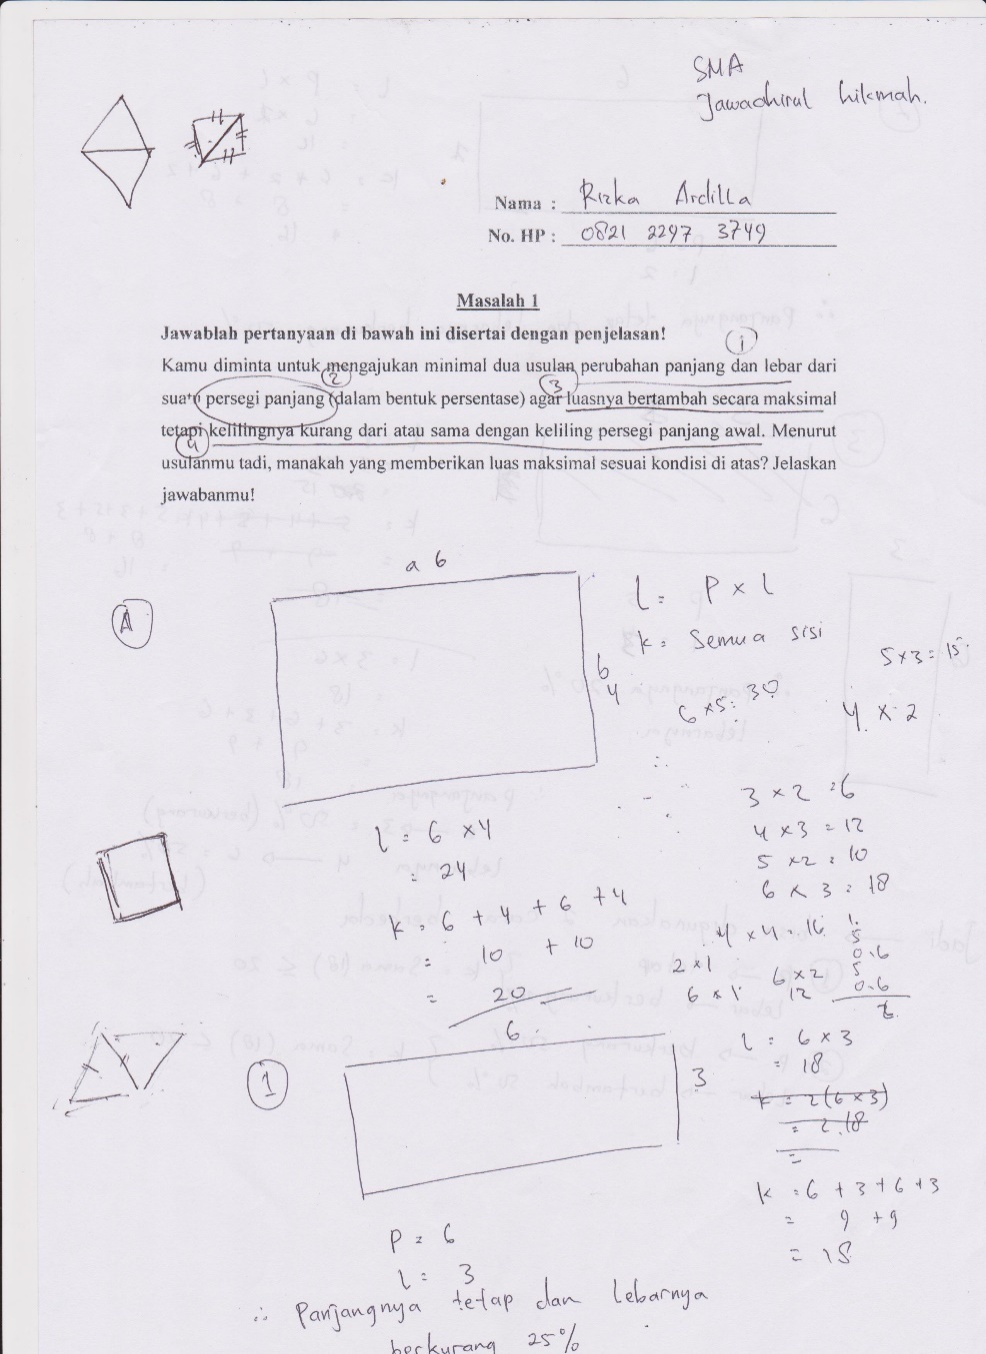 SMA
Jawaahirul hikmah.
Nama : Rizka Ardilla
No. HP : 0821 2297 3749
Masalah 1
Jawablah pertanyaan di bawah ini disertai dengan penjelasan!
1
Kamu diminta untuk mengajukan minimal dua usulan perubahan panjang dan lebar dari
2
3
suatu persegi panjang (dalam bentuk persentase) agar luasnya bertambah secara maksimal
tetapi kelilingnya kurang dari atau sama dengan keliling persegi panjang awal. Menurut
4
usulanmu tadi, manakah yang memberikan luas maksimal sesuai kondisi di atas? Jelaskan
jawabanmu!
A
a 6
b
4
L = P x l
k = Semua sisi
5x3 = 15
6 x 5 = 30
4 x 2
3 x 2 = 6
4 x 3 = 12
5 x 2 = 10
6 x 3 = 18
4 x 4 = 16
2 x 1
6 x 2
6 x 1
12
5
0.6
5
0.6
l = 6 x 4
= 24
k = 6 + 4 + 6 + 4
= 10 + 10
= 20
1
6
3
L = 6 x 3
= 18
k = 2(6 x 3)
= 2.18
=
k = 6 + 3 + 6 + 3
= 9 + 9
= 18
P = 6
l = 3
∴ Panjangnya tetap dan lebarnya
berkurang 25%